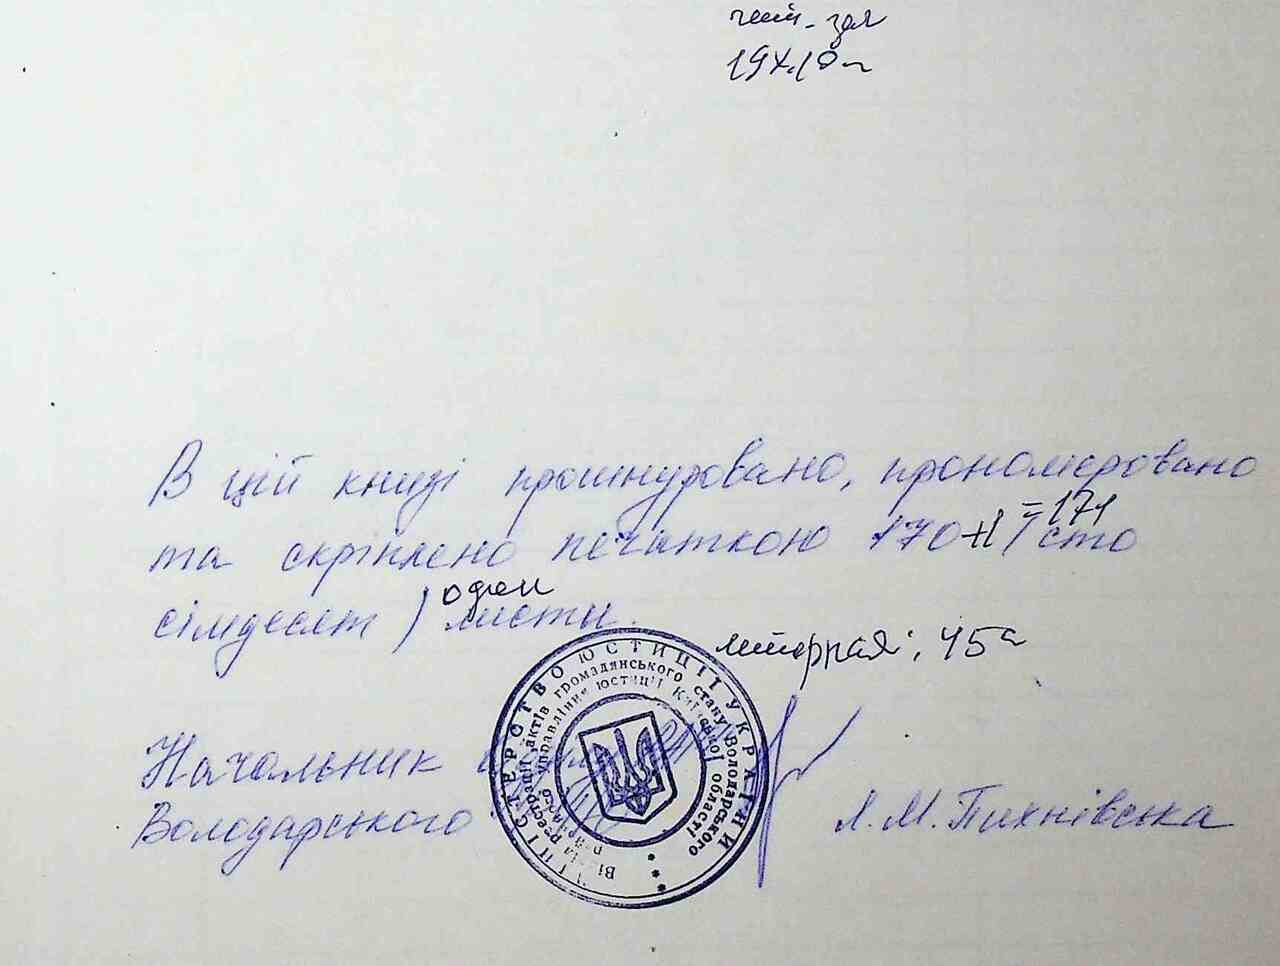 чит. зал
В цій книзі прошнуровано, пронумеровано
та скріплено печаткою 170+1=171 (сто
сімдесят) один листи.
литерная: 45а
Начальник відділу РАЦС
Володарського
Л.М. Пихнівська
МІНІСТЕРСТВО ЮСТИЦІЇ УКРАЇНИ
Відділ реєстрації актів громадянського стану Володарського
районного управління юстиції Київської області